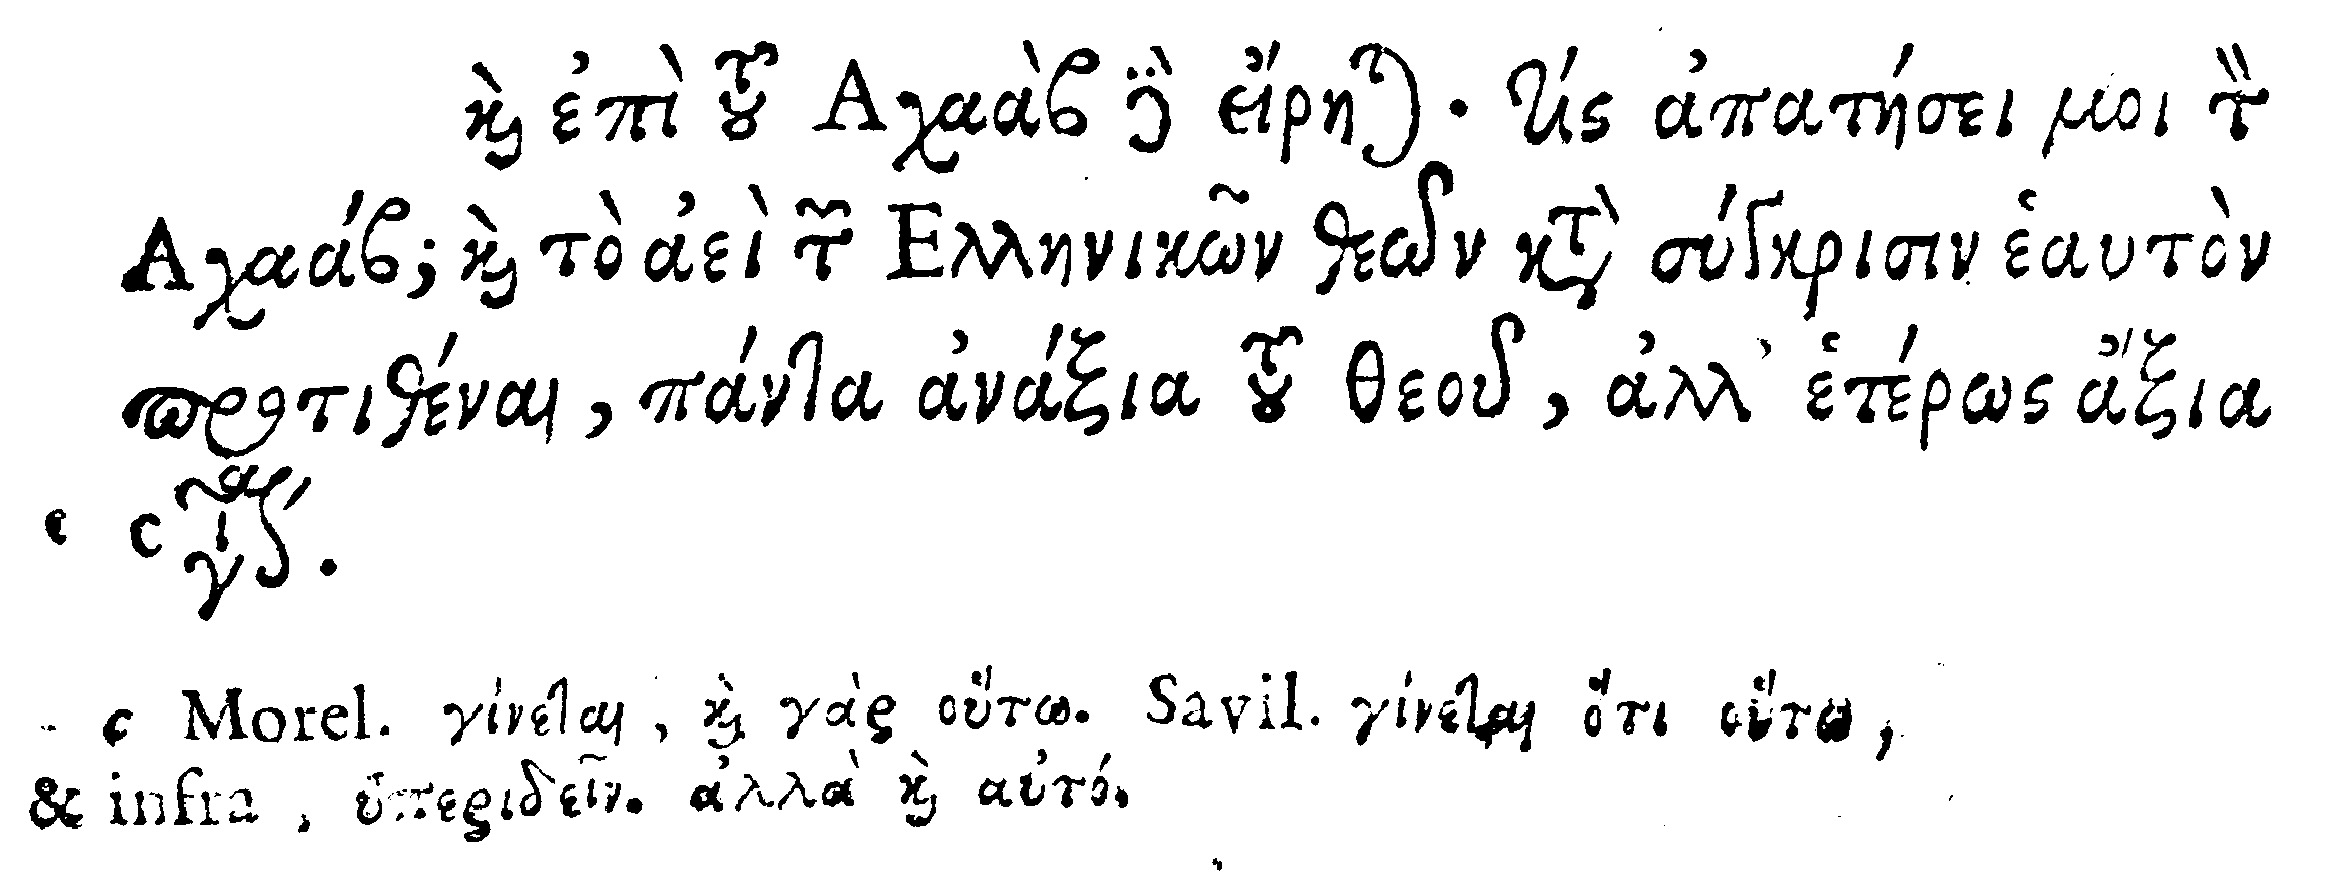 καὶ ἐπὶ τοῦ Αχαὰβ δὲ εἴρηται. Τίς ἀπατήσει μοι τὸν
Αχαάβ; καὶ τὸ ἀεὶ τῶν Ελληνικῶν θεῶν κατὰ σύγκρισιν ἑαυτὸν
προτιθέναι, πάντα ἀνάξια τοῦ θεοῦ, ἀλλ' ἑτέρως ἄξια
c
c Morel. γίνεται, καὶ γὰρ οὕτω. Savil. γίνεται ὅτι οὕτω,
& infra, ὑπεριδεῖν. ἀλλὰ καὶ αὐτό.